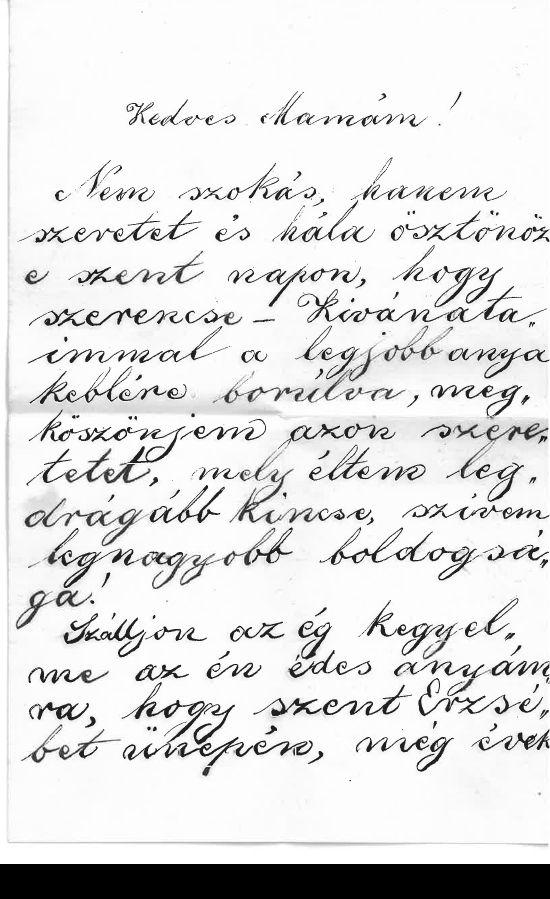 Kedves Mamám!
Nem szokás, hanem
szeretet és hála ösztönöz
e szent napon, hogy
szerencse - Kivánata„
immal a legjobb anya
keblére borúlva, meg„
köszönjem azon szere„
tetet, mely éltem leg„
drágább kincse, szívem
legnagyobb boldogsá„
ga!
Szálljon az ég kegyel„
me az én édes anyám„
ra, hogy szent Erzsé„
bet ünepén, még évek